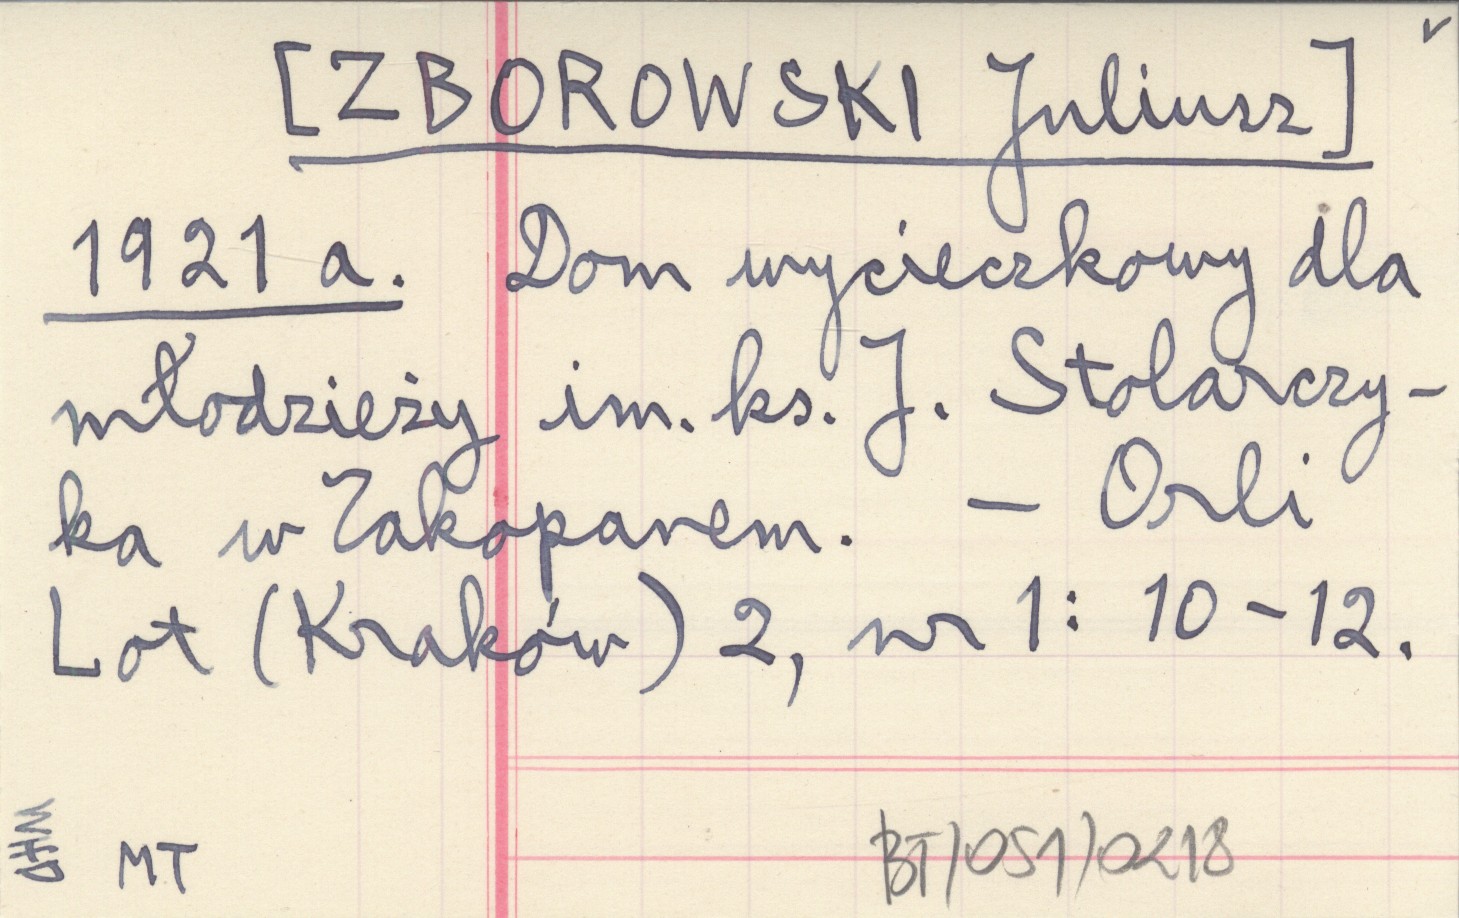 [ZBOROWSKI Juliusz]
1921 a. Dom wycieczkowy dla
młodzieży im. ks. J. Stolarczy-
ka w Zakopanem. — Orli
Lot (Kraków) 2, nr 1: 10-12.
MT
BT/051/0218